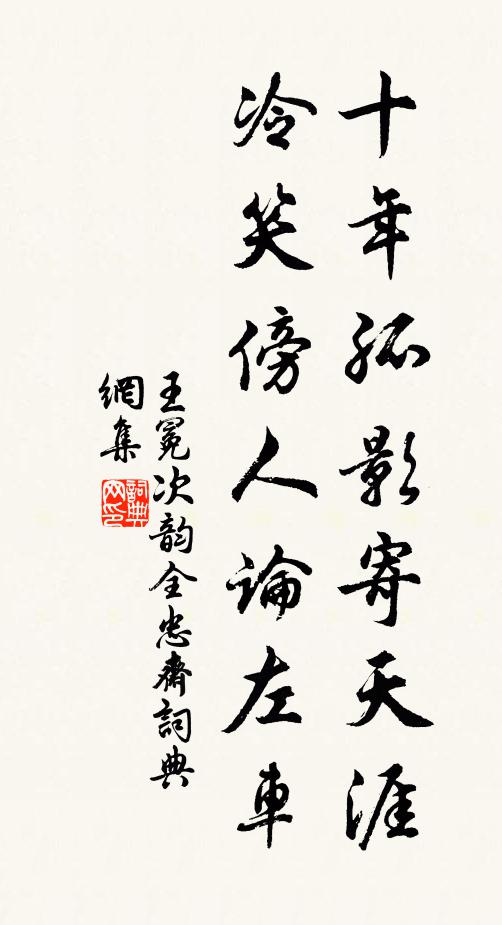 十年孤影寄天涯
冷笑傍人論左車
王冕次韵全忠齋詞典
網集
詞典
网印